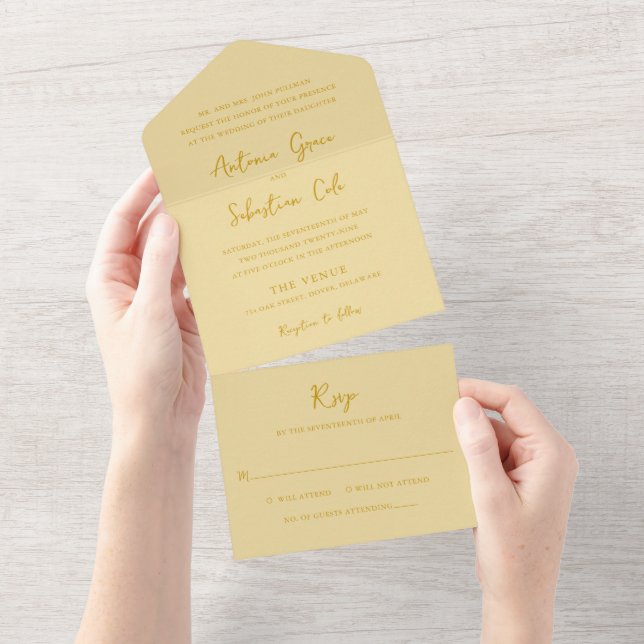 MR. AND MRS. JOHN PULLMAN
REQUEST THE HONOR OF YOUR PRESENCE
AT THE WEDDING OF THEIR DAUGHTER
Antonia Grace
AND
Sebastian Cole
SATURDAY, THE SEVENTEENTH OF MAY
TWO THOUSAND TWENTY-NINE
AT FIVE O'CLOCK IN THE AFTERNOON
THE VENUE
734 OAK STREET, DOVER, DELAWARE
Reception to follow
Rsvp
BY THE SEVENTEENTH OF APRIL
M
WILL ATTEND WILL NOT ATTEND
NO. OF GUESTS ATTENDING